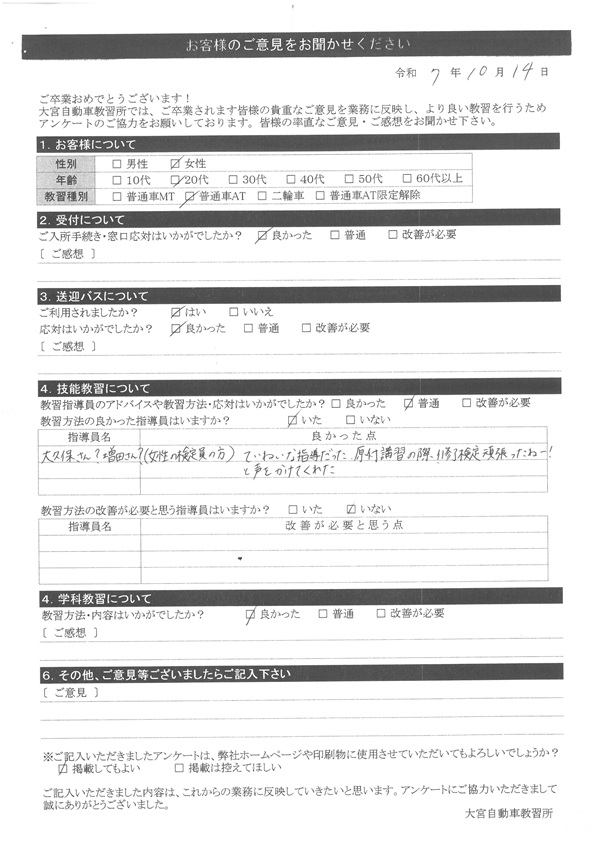 お客様のご意見をお聞かせください
令和 7 年 10 月 14 日
ご卒業おめでとうございます！
大宮自動車教習所では、ご卒業されます皆様の貴重なご意見を業務に反映し、より良い教習を行うため
アンケートのご協力をお願いしております。皆様の率直なご意見・ご感想をお聞かせ下さい。
1. お客様について
性別 □ 男性 ☑ 女性
年齢 □ 10代 ☑ 20代 □ 30代 □ 40代 □ 50代 □ 60代以上
教習種別 □ 普通車MT ☑ 普通車AT □ 二輪車 □ 普通車AT限定解除
2. 受付について
ご入所手続き・窓口応対はいかがでしたか？ ☑ 良かった □ 普通 □ 改善が必要
〔 ご感想 〕
3. 送迎バスについて
ご利用されましたか？ ☑ はい □ いいえ
応対はいかがでしたか？ ☑ 良かった □ 普通 □ 改善が必要
〔 ご感想 〕
4. 技能教習について
教習指導員のアドバイスや教習方法・応対はいかがでしたか？ □ 良かった ☑ 普通 □ 改善が必要
教習方法の良かった指導員はいますか？ ☑ いた □ いない
指導員名 良かった点
大久保さん？増田さん？(女性の検定員の方) ていねいな指導だった 原付講習の際、修了検定頑張ったねー！
と声をかけてくれた
教習方法の改善が必要と思う指導員はいますか？ □ いた ☑ いない
指導員名 改善が必要と思う点
4. 学科教習について
教習方法・内容はいかがでしたか？ ☑ 良かった □ 普通 □ 改善が必要
〔 ご感想 〕
6. その他、ご意見等ございましたらご記入下さい
〔 ご意見 〕
※ご記入いただきましたアンケートは、弊社ホームページや印刷物に使用させていただいてもよろしいでしょうか？
☑ 掲載してもよい □ 掲載は控えてほしい
ご記入いただきました内容は、これからの業務に反映していきたいと思います。アンケートにご協力いただきまして
誠にありがとうございました。
大宮自動車教習所